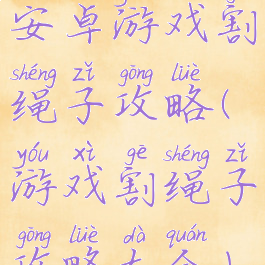 安卓游戏割
shéng zǐ gōng lüè
绳子攻略(
yóu xì gē shéng zǐ
游戏割绳子
gōng lüè dà quán
攻略大全)